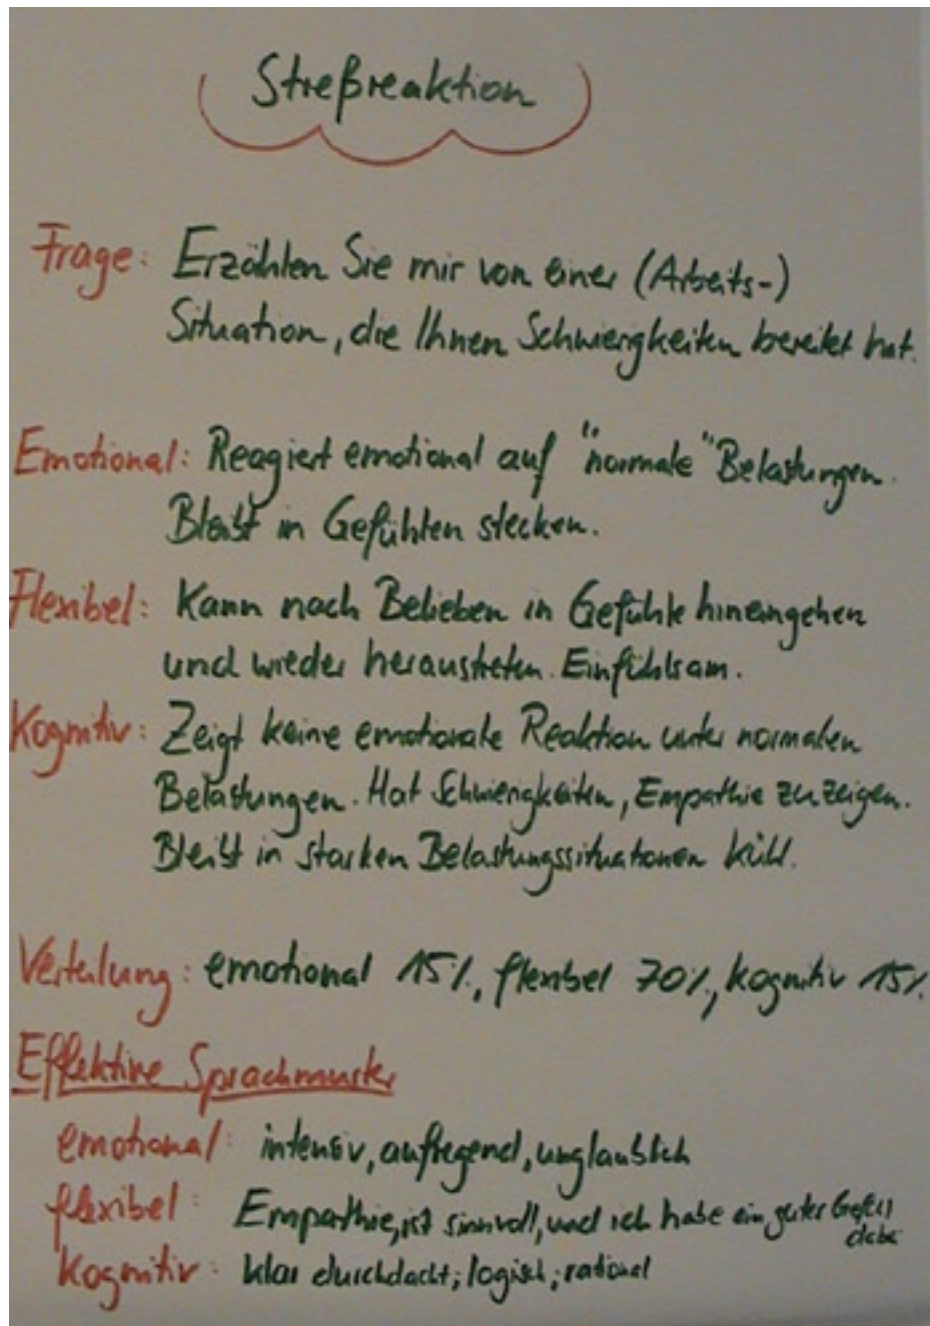 Streßreaktion
Frage: Erzählen Sie mir von einer (Arbeits-)
Situation, die Ihnen Schwierigkeiten bereitet hat.
Emotional: Reagiert emotional auf "normale" Belastungen.
Bleibt in Gefühlen stecken.
Flexibel: Kann nach Belieben in Gefühle hineingehen
und wieder heraustreten. Einfühlsam.
Kognitiv: Zeigt keine emotionale Reaktion unter normalen
Belastungen. Hat Schwierigkeiten, Empathie zu zeigen.
Bleibt in starken Belastungssituationen kühl.
Verteilung: emotional 15%, flexibel 70%, kognitiv 15%
Effektive Sprachmuster
emotional: intensiv, aufregend, unglaublich
flexibel: Empathie, ist sinnvoll, und ich habe ein gutes Gefühl
dabei
kognitiv: klar durchdacht; logisch; rational